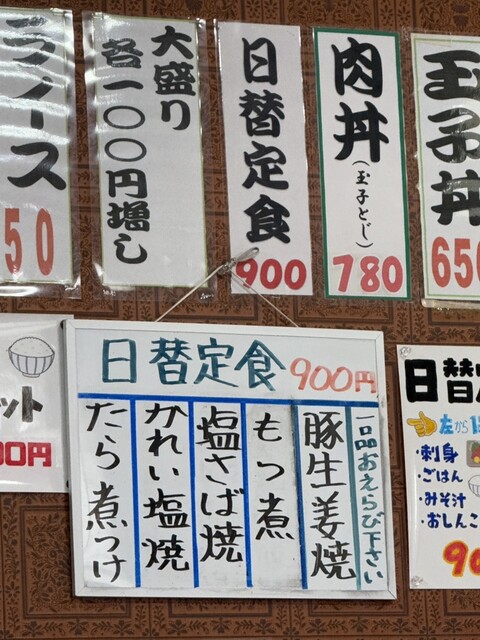 玉子丼
650
肉丼
(玉子とじ)
780
日替定食
900
大盛り
各一〇〇円増し
ース
50
日替定食 900円
一品おえらび下さい
豚生姜焼
もつ煮
塩さば焼
かれい塩焼
たら煮つけ
日替
左から
・刺身
・ごはん
・みそ汁
・おしんこ
90
ット
00円